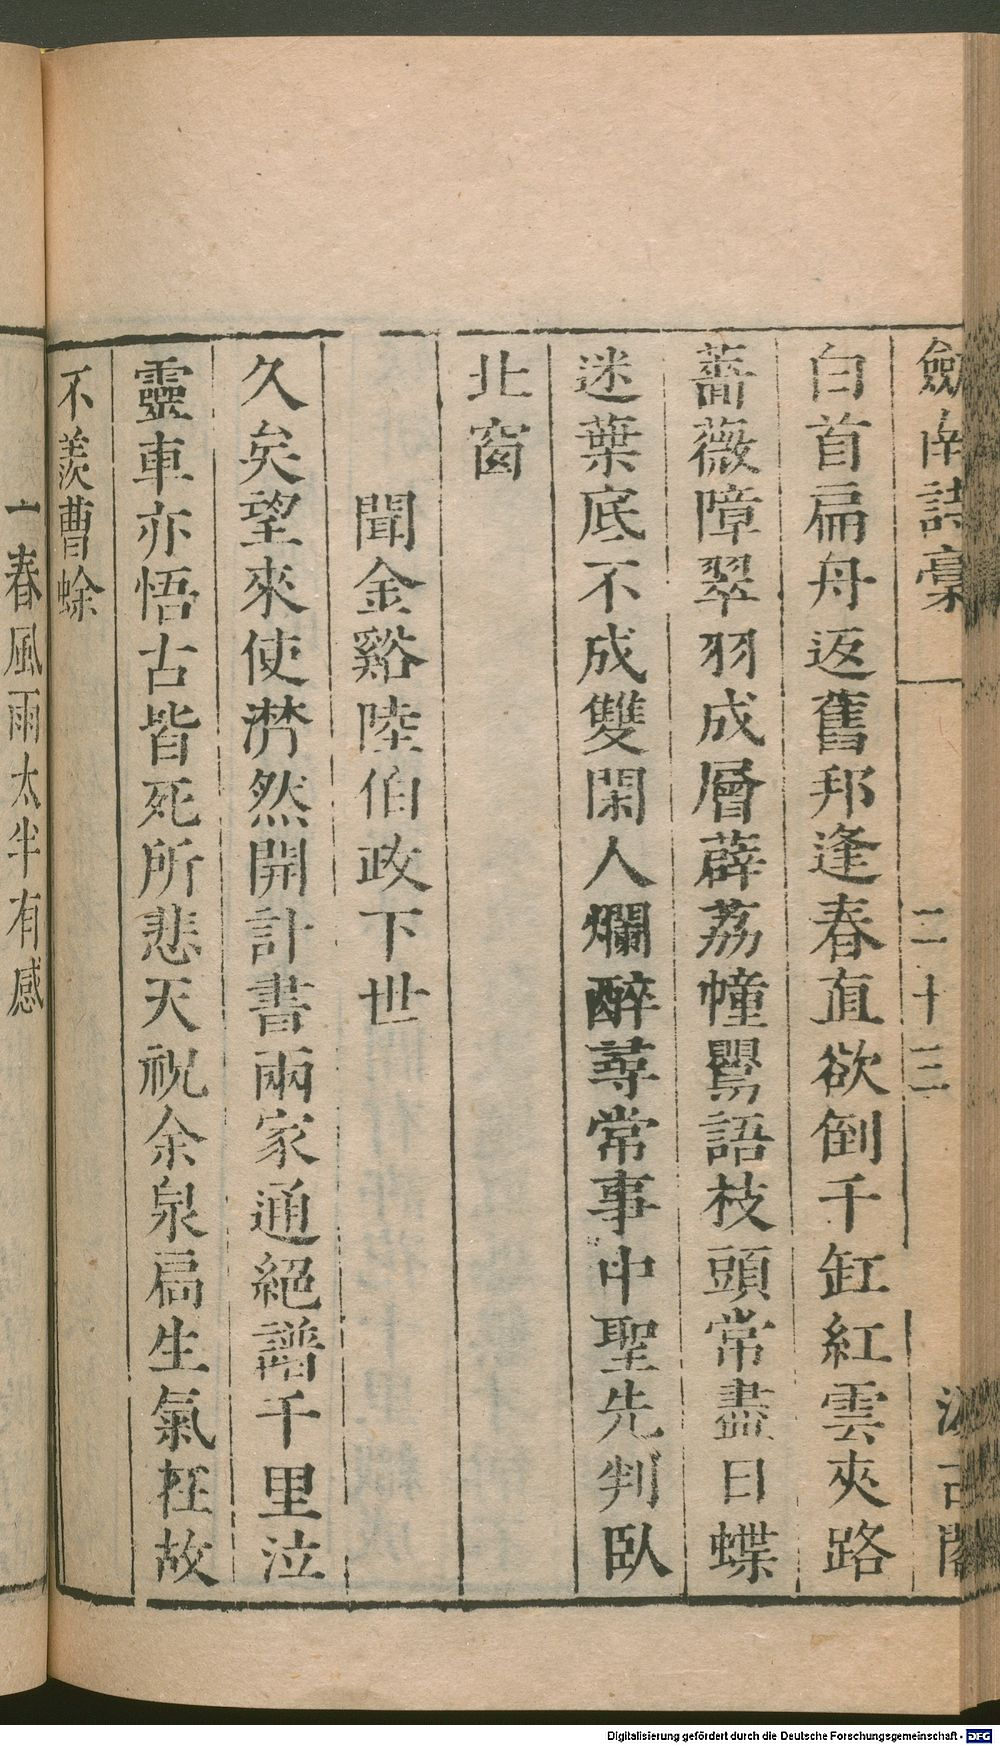 劔南詩稾 二十三 汲古閣
白首扁舟返舊邦逢春直欲倒千缸紅雲夾路
薔薇障翠羽成層薜荔幢鸎語枝頭常盡日蝶
迷葉底不成雙閑人爛醉尋常事中聖先判臥
北窗
聞金谿陸伯政下世
久矣望來使潸然開訃書兩家通絕譜千里泣
靈車亦悟古皆死所悲天祝余泉扃生氣在故
不羨曹蜍
一春風雨太半有感
Digitalisierung gefördert durch die Deutsche Forschungsgemeinschaft - DFG